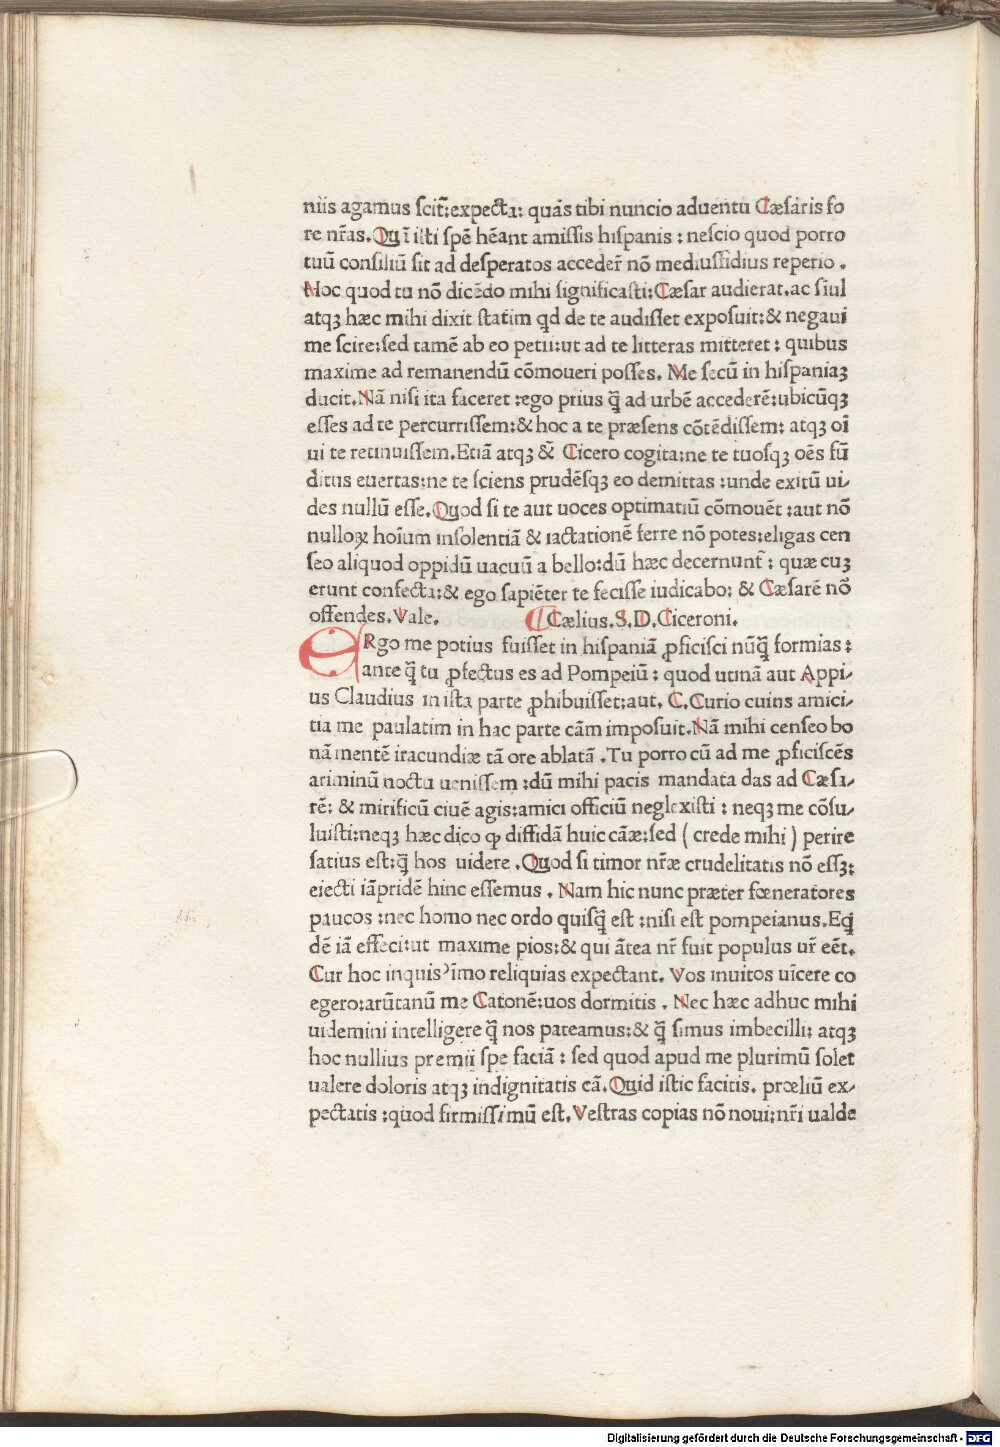 niis agamus ſcit̃:expecta: quãs tibi nuncio aduentu Cæſaris fo
re nr̃as.Qui iſti ſpẽ hẽant amiſſis hiſpanis : neſcio quod porro
tuũ conſiliũ ſit ad deſperatos acceder̃ nõ mediuſſidius reperio .
Hoc quod tu nõ dicẽdo mihi ſignificaſti:Cæſar audierat.ac ſĩul
atqꝫ hæc mihi dixit ſtatim qd de te audiſſet expoſuit:& negaui
me ſcire:ſed tamẽ ab eo petii:ut ad te litteras mitteret : quibus
maxime ad remanendũ cõmoueri poſſes. Me ſecũ in hiſpaniaꝫ
ducit.Nã niſi ita faceret :ego prius q̃ ad urbẽ accederẽ:ubicũqꝫ
eſſes ad te percurriſſem:& hoc a te præſens cõtẽdiſſem: atqꝫ oĩ
ui te retinuiſſem.Etiã atqꝫ & Cicero cogita:ne te tuoſqꝫ oẽs fũ
ditus euertas:ne te ſciens prudẽſqꝫ eo demittas :unde exitũ ui-
des nullũ eſſe.Quod ſi te aut uoces optimatiũ cõmouẽt :aut nõ
nulloꝝ hoĩum inſolentiã & iactationẽ ferre nõ potes:eligas cen
ſeo aliquod oppidũ uacuũ a bello:dũ hæc decernunt̃ : quæ cuꝫ
erunt confecta:& ego ſapiẽter te feciſſe iudicabo: & Cæſarẽ nõ
offendes.Vale.
Cælius.S.D.Ciceroni.
ERgo me potius fuiſſet in hiſpaniã ꝓficiſci nũq̃ formias :
ante q̃ tu ꝓfectus es ad Pompeiũ : quod utinã aut Appi-
us Claudius in iſta parte ꝓhibuiſſet:aut. C.Curio cuius amici-
tia me paulatim in hac parte cãm impoſuit.Nã mihi cenſeo bo
nã mentẽ iracundiæ tã ore ablatã .Tu porro cũ ad me ꝓficiſcẽs
ariminũ noctu ueniſſem :dũ mihi pacis mandata das ad Cæſa-
rẽ: & mirificũ ciuẽ agis:amici officiũ neglexiſti : neqꝫ me cõſu-
luiſti:neqꝫ hæc dico ꝙ diffidã huic cãæ:ſed ( crede mihi ) perire
ſatius eſt:q̃ hos uidere .Quod ſi timor nr̃æ crudelitatis nõ eſſꝫ:
eiecti iãpridẽ hinc eſſemus . Nam hic nunc præter fœneratores
paucos :nec homo nec ordo quiſq̃ eſt :niſi eſt pompeianus.Eq̃
dẽ iã effeci:ut maxime pios:& qui ãtea nr̃ fuit populus ur̃ eẽt.
Cur hoc inquis?ĩmo reliquias expectant. Vos inuitos uĩcere co
egero:arũtanũ me Catonẽ:uos dormitis . Nec hæc adhuc mihi
uidemini intelligere q̃ nos pateamus:& q̃ ſimus imbecilli: atqꝫ
hoc nullius premii ſpe faciã : ſed quod apud me plurimũ ſolet
ualere doloris atqꝫ indignitatis cã.Quid iſtic facitis. prœliũ ex-
pectatis :quod firmiſſimũ eſt.Veſtras copias nõ noui:nr̃i ualde
Digitalisierung gefördert durch die Deutsche Forschungsgemeinschaft - DFG